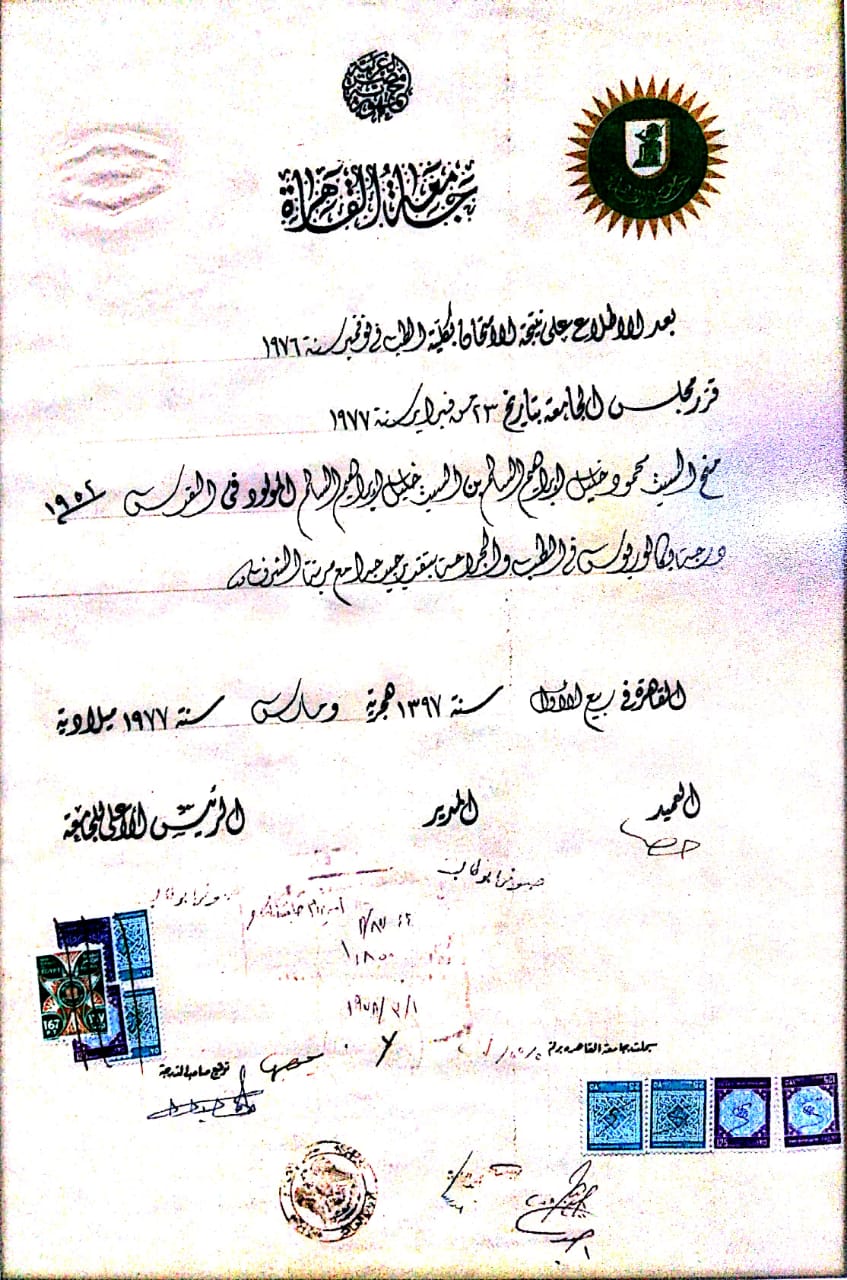 جمهورية مصر العربية
جامعة القاهرة
بعد الاطلاع على نتيجة الامتحان بكلية الطب في نوفمبر سنة ١٩٧٦
قرر مجلس الجامعة بتاريخ ٢٣ من فبراير سنة ١٩٧٧
منح السيد محمود خليل ابراهيم السالم بن السيد خليل ابراهيم السالم المولود في القدس ١٩٥٢
درجة بكالوريوس في الطب والجراحة بتقدير جيد جدا مع مرتبة الشرف
القاهرة في ربيع الأول سنة ١٣٩٧ هجرية ومارس سنة ١٩٧٧ ميلادية
العميد المدير الرئيس الأعلى للجامعة
صوفى ابو طالب
صوفى ابو طالب
سجلت بجامعة القاهرة برقم
توقيع صاحب الدرجة